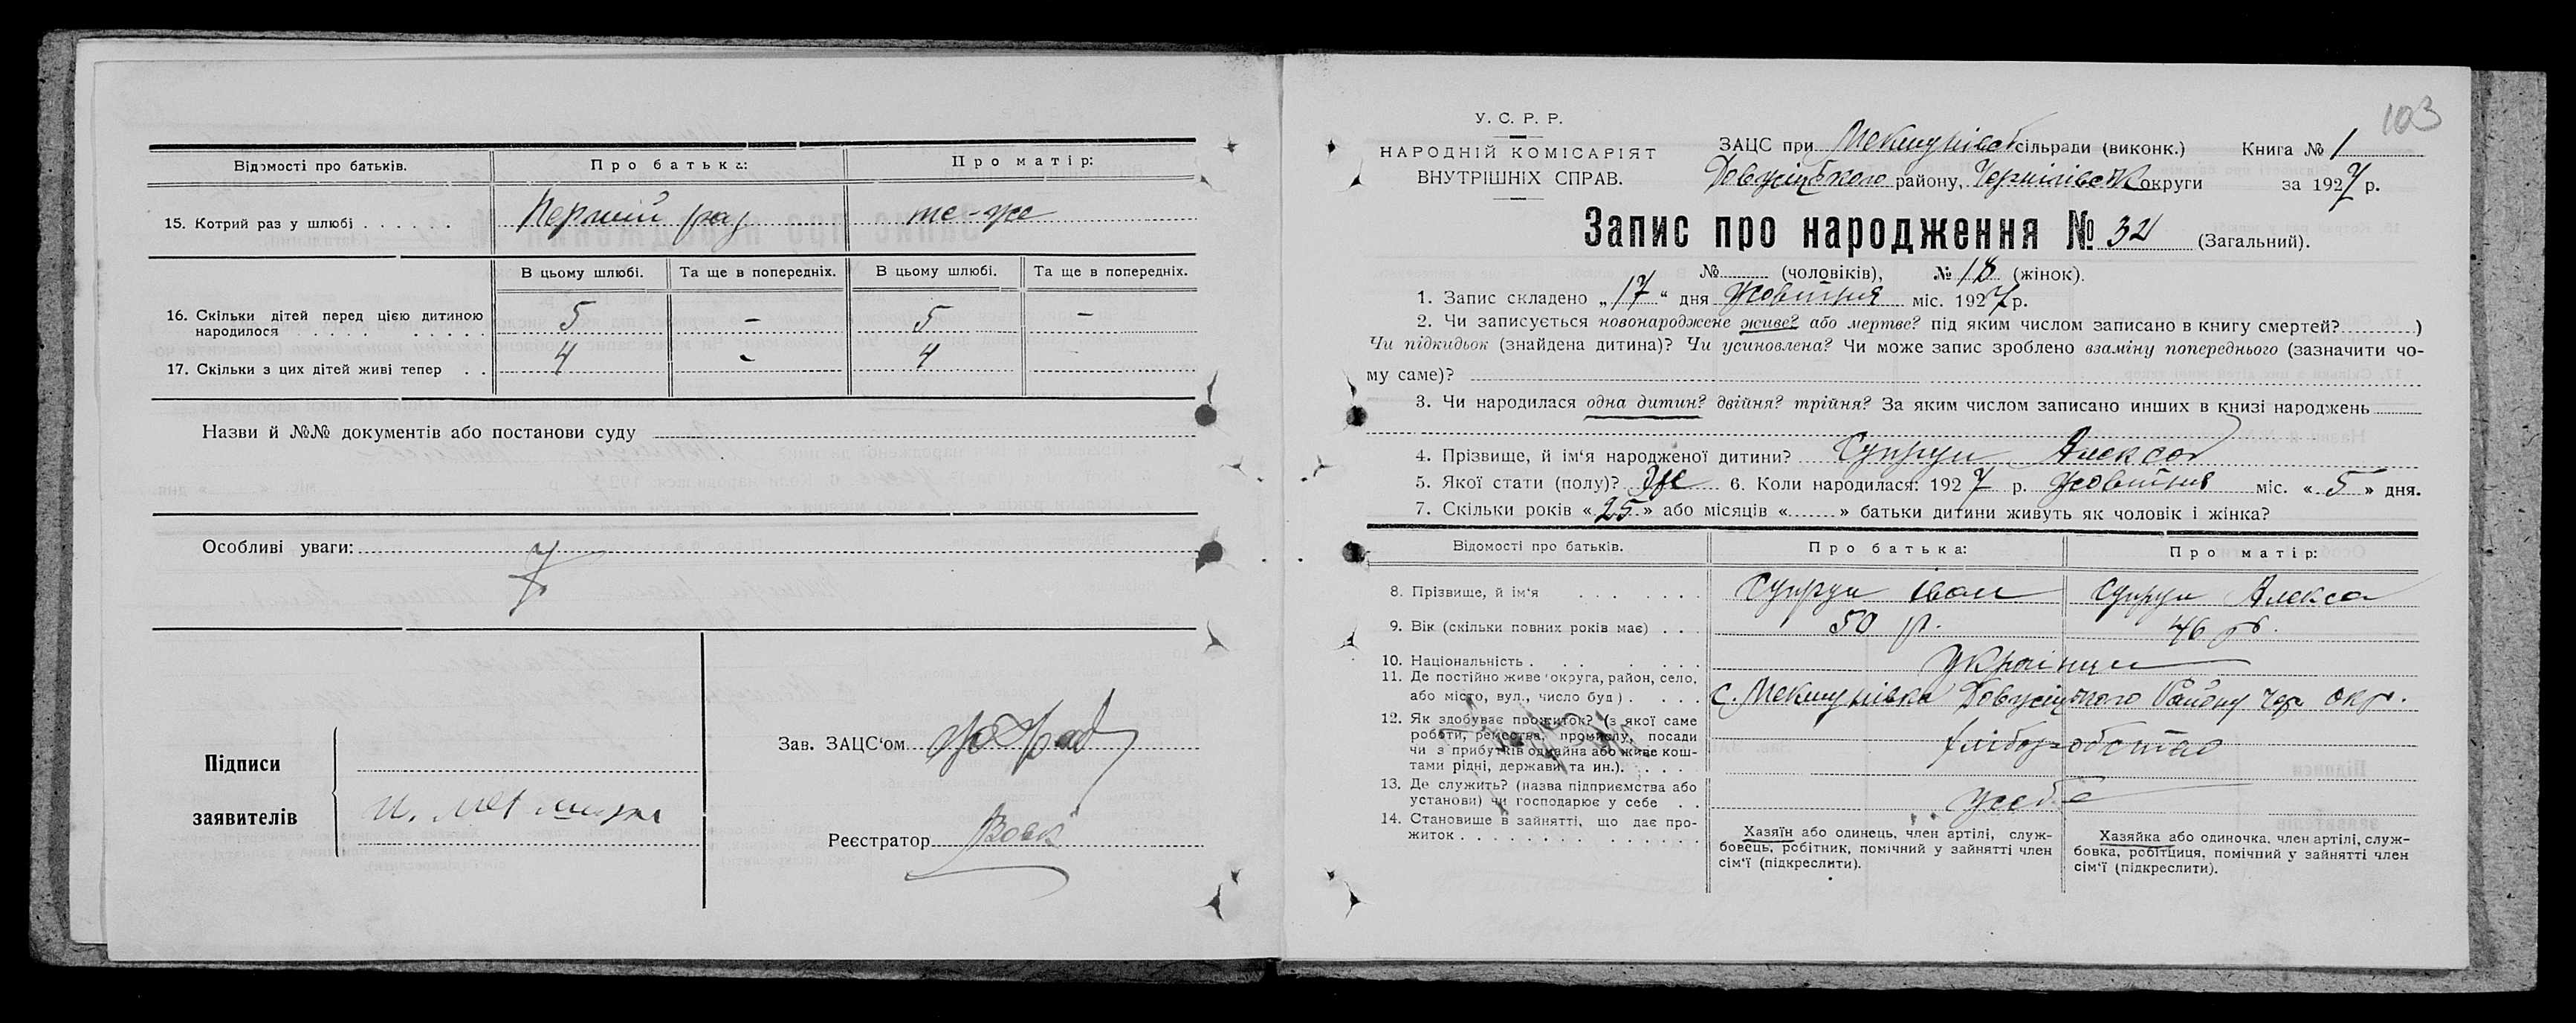 Відомості про батьків.
Про батька:
Про матір:
15. Котрий раз у шлюбі
Перший раз
те-же
В цьому шлюбі.
Та ще в попередніх.
В цьому шлюбі.
Та ще в попередніх.
16. Скільки дітей перед цією дитиною
народилося
5 - 5 -
17. Скільки з цих дітей живі тепер
4 - 4
Назви й №№ документів або постанови суду
Особливі уваги:
Підписи
заявителів
Зав. ЗАЦС'ом
Реєстратор
103
У. С. Р. Р.
НАРОДНІЙ КОМІСАРІЯТ
ВНУТРІШНІХ СПРАВ.
ЗАЦС при сільради (виконк.) Книга № 1
району, округи за 1927 р.
Запис про народження № 32 (Загальний).
№ (чоловіків), № 18 (жінок).
1. Запис складено „17“ дня Жовтня міс. 1927 р.
2. Чи записується новонароджене живе? або мертве? під яким числом записано в книгу смертей? )
Чи підкидьок (знайдена дитина)? Чи усиновлена? Чи може запис зроблено взаміну попереднього (зазначити чо-
му саме)?
3. Чи народилася одна дитин? двійня? трійня? За яким числом записано инших в книзі народжень
4. Прізвище, й ім'я народженої дитини? Супрун
5. Якої стати (полу)? Же 6. Коли народилася: 1927 р. Жовтня міс. «5» дня.
7. Скільки років «25» або місяців « » батьки дитини живуть як чоловік і жінка?
Відомості про батьків.
Про батька:
Про матір:
8. Прізвище, й ім'я
Супрун Іван
Супрун Алекса
9. Вік (скільки повних років має)
50 р.
46 р.
10. Національність
Українци
11. Де постійно живе округа, район, село,
або місто, вул., число буд)
с. Району Чер окр.
12. Як здобуває прожиток? (з якої саме
роботи, ремества, промислу, посади
чи з прибутків одмайна або живе кош-
тами рідні, держави та ин.).
хліборобство
13. Де служить? (назва підприємства або
установи) чи господарює у себе
усебе
14. Становище в зайнятті, що дає про-
житок
Хазяїн або одинець, член артілі, служ-
бовець, робітник, помічний у зайнятті член
сім'ї (підкреслити).
Хазяйка або одиночка, член артілі, служ-
бовка, робітниця, помічний у зайнятті член
сім'ї (підкреслити).